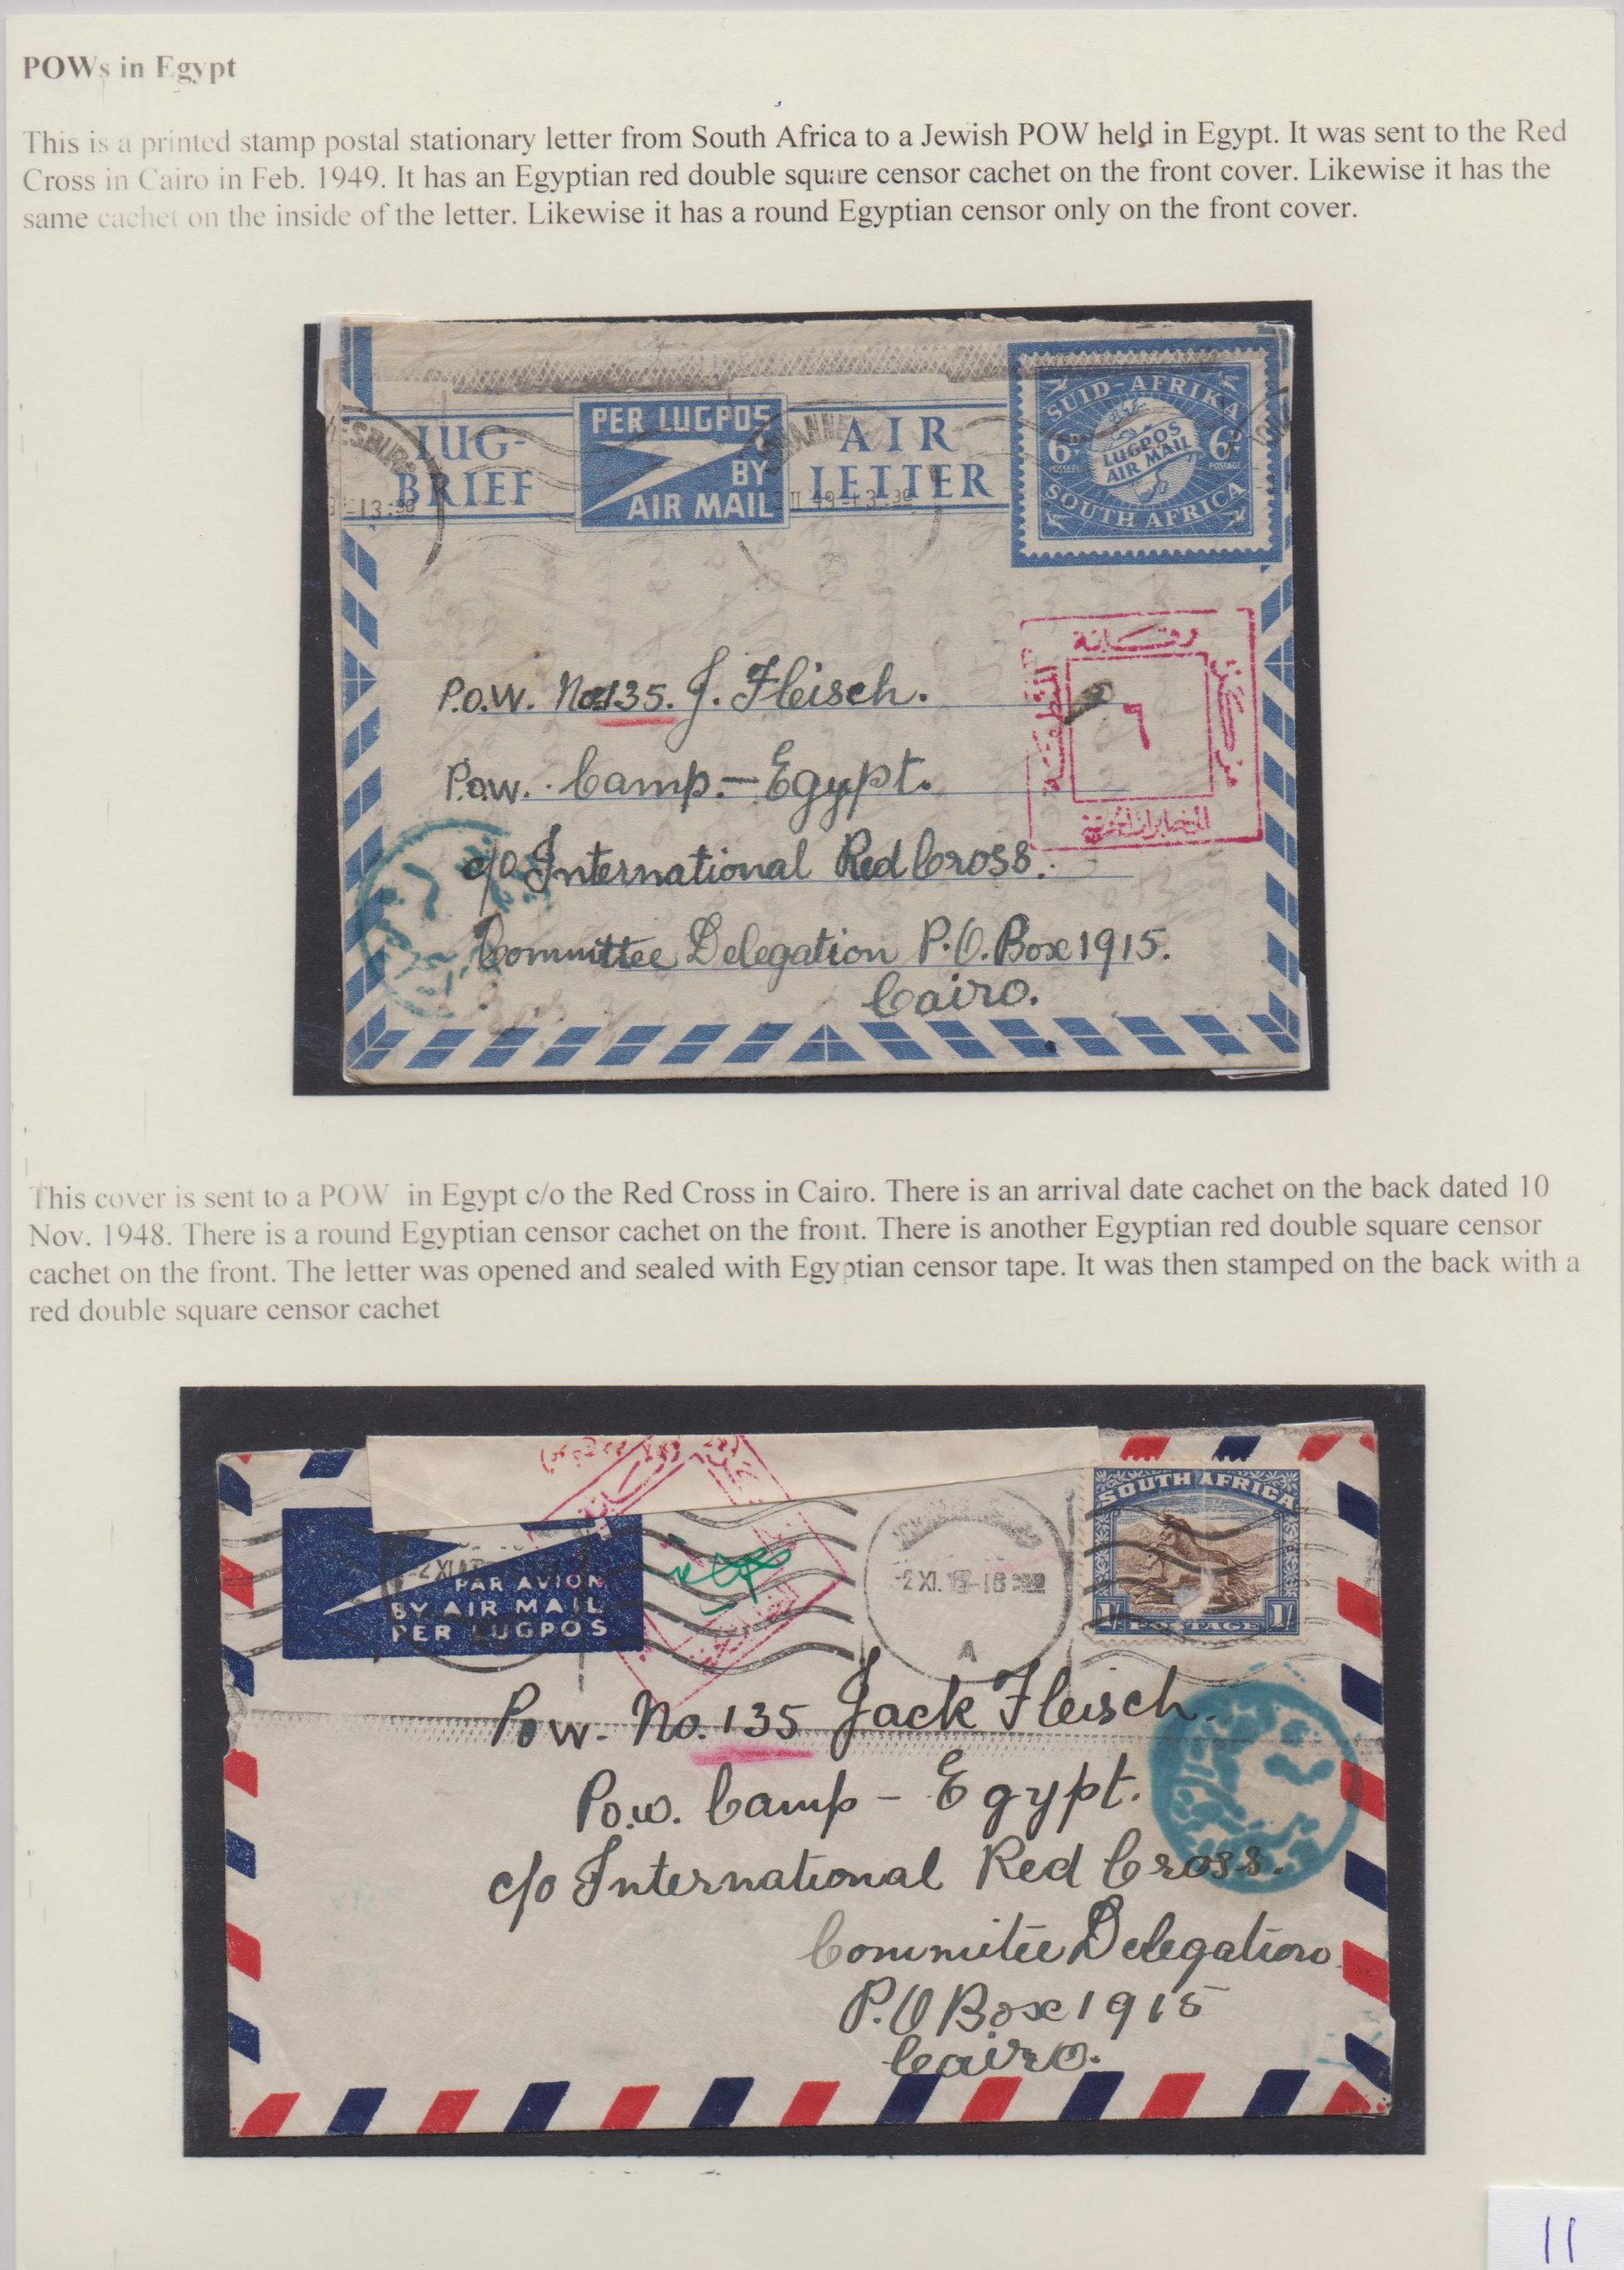 POWs in Egypt
This is a printed stamp postal stationary letter from South Africa to a Jewish POW held in Egypt. It was sent to the Red
Cross in Cairo in Feb. 1949. It has an Egyptian red double square censor cachet on the front cover. Likewise it has the
same cachet on the inside of the letter. Likewise it has a round Egyptian censor only on the front cover.
LUG-
BRIEF
PER LUGPOS
BY
AIR MAIL
AIR
LETTER
SUID-AFRIKA
6D 6D
POSSEEL POSTAGE
LUGPOS
AIR MAIL
SOUTH AFRICA
رقابة
٦
P.O.W. No 135. J. Fleisch.
P.O.W. Camp. - Egypt.
c/o International Red Cross.
Committee Delegation P.O. Box 1915.
Cairo.
This cover is sent to a POW in Egypt c/o the Red Cross in Cairo. There is an arrival date cachet on the back dated 10
Nov. 1948. There is a round Egyptian censor cachet on the front. There is another Egyptian red double square censor
cachet on the front. The letter was opened and sealed with Egyptian censor tape. It was then stamped on the back with a
red double square censor cachet
PAR AVION
BY AIR MAIL
PER LUGPOS
-2 XI.
A
SOUTH AFRICA
1/- POSTAGE 1/-
P.O.W. No. 135 Jack Fleisch.
P.O.W. Camp - Egypt.
c/o International Red Cross.
Committee Delegation
P.O Box 1915
Cairo.
11